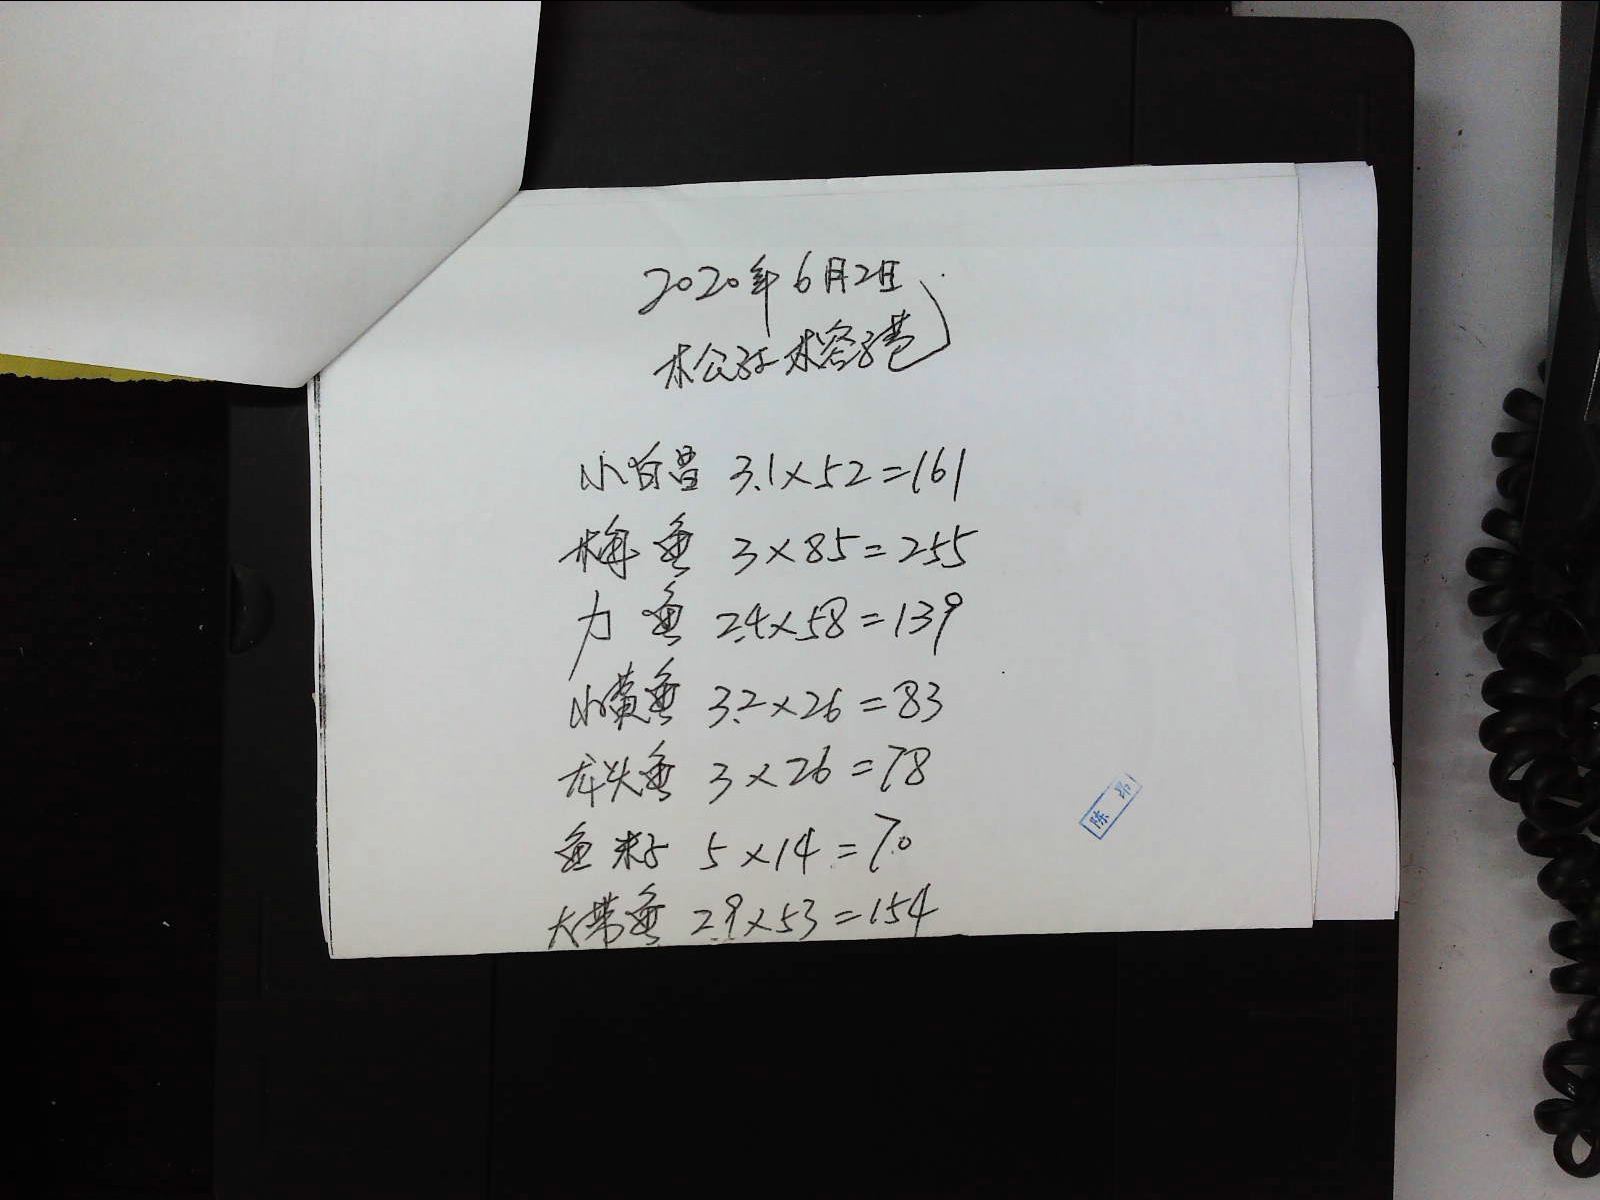 2020年6月2日
小白昌 3.1×52=161
梅鱼 3×85=255
力鱼 2.4×58=139
小黄鱼 3.2×26=83
龙头鱼 3×26=78
鱼籽 5×14=70
大带鱼 2.9×53=154
陈昂